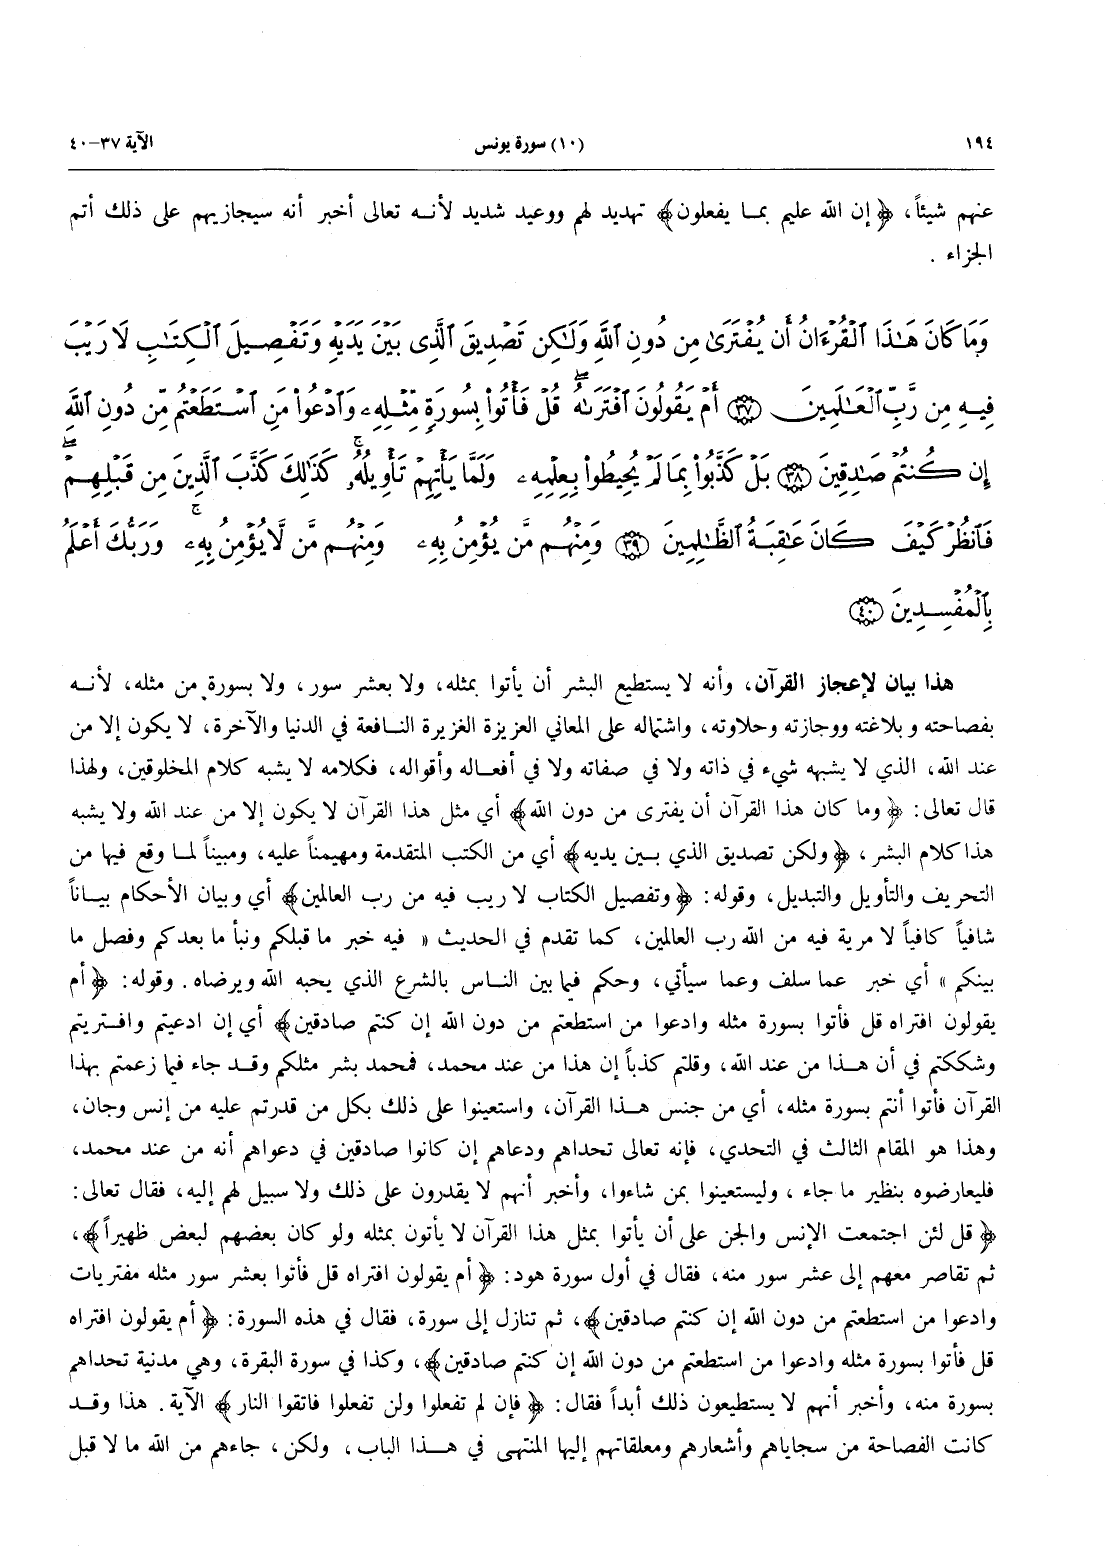 ١٩٤ (١٠) سورة يونس الآية ٣٧-٤٠
عنهم شيئاً، ﴿ إن الله عليم بما يفعلون﴾ تهديد لهم ووعيد شديد لأنه تعالى أخبر أنه سيجازيهم على ذلك أتم
الجزاء .
وَمَا كَانَ هَٰذَا ٱلْقُرْءَانُ أَن يُفْتَرَىٰ مِن دُونِ ٱللَّهِ وَلَٰكِن تَصْدِيقَ ٱلَّذِى بَيْنَ يَدَيْهِ وَتَفْصِيلَ ٱلْكِتَٰبِ لَا رَيْبَ
فِيهِ مِن رَّبِّ ٱلْعَٰلَمِينَ ﴿٣٧﴾ أَمْ يَقُولُونَ ٱفْتَرَىٰهُ ۖ قُلْ فَأْتُوا۟ بِسُورَةٍ مِّثْلِهِۦ وَٱدْعُوا۟ مَنِ ٱسْتَطَعْتُم مِّن دُونِ ٱللَّهِ
إِن كُنتُمْ صَٰدِقِينَ ﴿٣٨﴾ بَلْ كَذَّبُوا۟ بِمَا لَمْ يُحِيطُوا۟ بِعِلْمِهِۦ وَلَمَّا يَأْتِهِمْ تَأْوِيلُهُۥ ۚ كَذَٰلِكَ كَذَّبَ ٱلَّذِينَ مِن قَبْلِهِمْ ۖ
فَٱنظُرْ كَيْفَ كَانَ عَٰقِبَةُ ٱلظَّٰلِمِينَ ﴿٣٩﴾ وَمِنْهُم مَّن يُؤْمِنُ بِهِۦ وَمِنْهُم مَّن لَّا يُؤْمِنُ بِهِۦ ۚ وَرَبُّكَ أَعْلَمُ
بِٱلْمُفْسِدِينَ ﴿٤٠﴾
هذا بيان لإعجاز القرآن، وأنه لا يستطيع البشر أن يأتوا بمثله، ولا بعشر سور، ولا بسورة من مثله، لأنه
بفصاحته وبلاغته ووجازته وحلاوته، واشتماله على المعاني العزيزة الغزيرة النافعة في الدنيا والآخرة، لا يكون إلا من
عند الله، الذي لا يشبهه شيء في ذاته ولا في صفاته ولا في أفعاله وأقواله، فكلامه لا يشبه كلام المخلوقين، ولهذا
قال تعالى: ﴿ وما كان هذا القرآن أن يفترى من دون الله﴾ أي مثل هذا القرآن لا يكون إلا من عند الله ولا يشبه
هذا كلام البشر، ﴿ ولكن تصديق الذي بين يديه﴾ أي من الكتب المتقدمة ومهيمناً عليه، ومبيناً لما وقع فيها من
التحريف والتأويل والتبديل، وقوله: ﴿ وتفصيل الكتاب لا ريب فيه من رب العالمين﴾ أي وبيان الأحكام بياناً
شافياً كافياً لا مرية فيه من الله رب العالمين، كما تقدم في الحديث « فيه خبر ما قبلكم ونبأ ما بعدكم وفصل ما
بينكم » أي خبر عما سلف وعما سيأتي، وحكم فيما بين الناس بالشرع الذي يحبه الله ويرضاه. وقوله: ﴿ أم
يقولون افتراه قل فأتوا بسورة مثله وادعوا من استطعتم من دون الله إن كنتم صادقين﴾ أي إن ادعيتم وافتريتم
وشككتم في أن هذا من عند الله، وقلتم كذباً إن هذا من عند محمد، فمحمد بشر مثلكم وقد جاء فيما زعمتم بهذا
القرآن فأتوا أنتم بسورة مثله، أي من جنس هذا القرآن، واستعينوا على ذلك بكل من قدرتم عليه من إنس وجان،
وهذا هو المقام الثالث في التحدي، فإنه تعالى تحداهم ودعاهم إن كانوا صادقين في دعواهم أنه من عند محمد،
فليعارضوه بنظير ما جاء ، وليستعينوا بمن شاءوا، وأخبر أنهم لا يقدرون على ذلك ولا سبيل لهم إليه، فقال تعالى:
﴿ قل لئن اجتمعت الإنس والجن على أن يأتوا بمثل هذا القرآن لا يأتون بمثله ولو كان بعضهم لبعض ظهيراً﴾،
ثم تقاصر معهم إلى عشر سور منه، فقال في أول سورة هود: ﴿ أم يقولون افتراه قل فأتوا بعشر سور مثله مفتريات
وادعوا من استطعتم من دون الله إن كنتم صادقين﴾، ثم تنازل إلى سورة، فقال في هذه السورة: ﴿ أم يقولون افتراه
قل فأتوا بسورة مثله وادعوا من استطعتم من دون الله إن كنتم صادقين﴾، وكذا في سورة البقرة، وهي مدنية تحداهم
بسورة منه، وأخبر أنهم لا يستطيعون ذلك أبداً فقال: ﴿ فإن لم تفعلوا ولن تفعلوا فاتقوا النار﴾ الآية. هذا وقد
كانت الفصاحة من سجاياهم وأشعارهم ومعلقاتهم إليها المنتهى في هذا الباب، ولكن، جاءهم من الله ما لا قبل